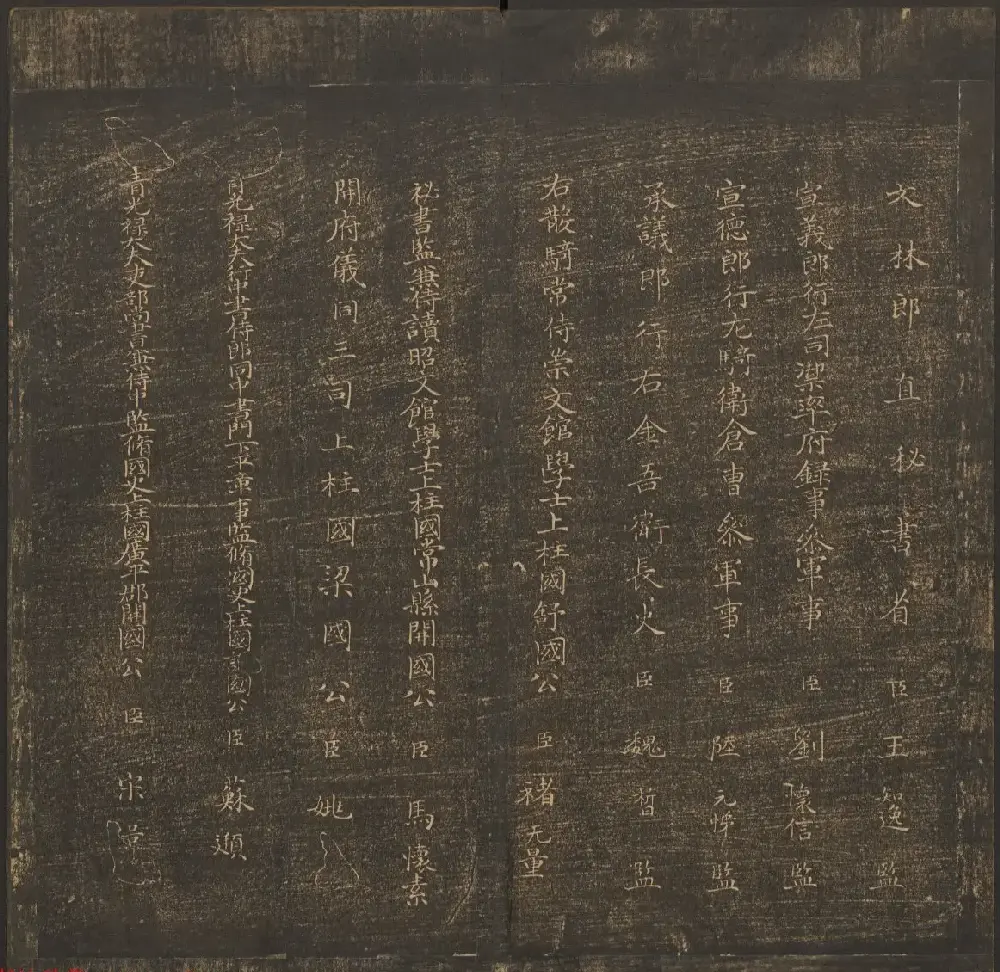 文林郎直秘書省臣王知逸監
宣義郎行左司禦率府録事叅軍事臣劉懷信監
宣德郎行左驍衛倉曹叅軍事臣陸元悌監
承議郎行右金吾衛長史臣魏哲監
右散騎常侍崇文館學士上柱國舒國公臣褚无量
祕書監兼侍讀昭文館學士上柱國常山縣開國公臣馬懷素
開府儀同三司上柱國梁國公臣姚
光禄大夫行中書侍郎同中書門下平章事監脩國史上柱國國公臣蘇頲
光禄大夫吏部尚書兼侍中監脩國史上柱國廣平郡開國公臣宋